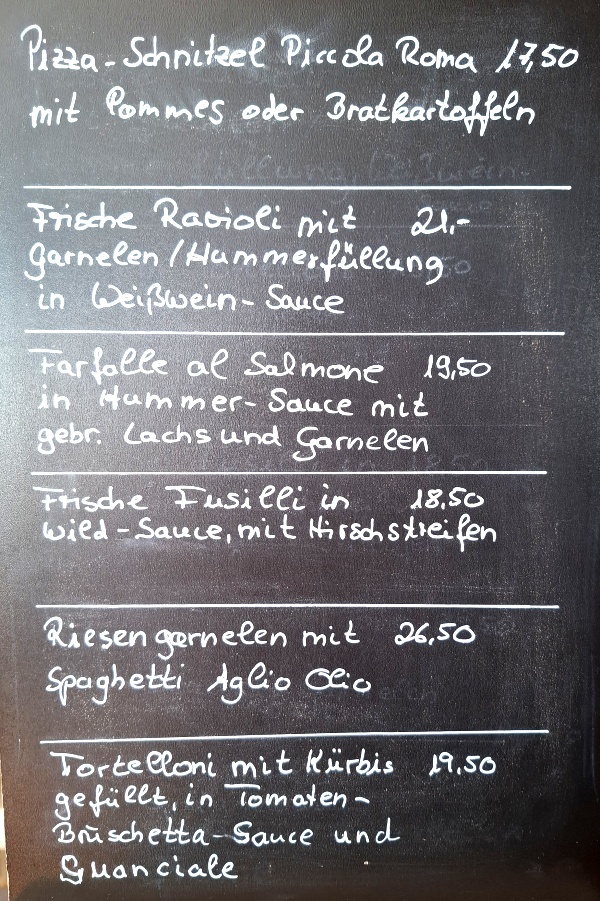 Pizza-Schnitzel Piccola Roma 17,50
mit Pommes oder Bratkartoffeln
Frische Ravioli mit 21,-
Garnelen/Hummerfüllung
in Weißwein-Sauce
Farfalle al Salmone 19,50
in Hummer-Sauce mit
gebr. Lachs und Garnelen
Frische Fusilli in 18,50
Wild-Sauce, mit Hirschstreifen
Riesengarnelen mit 26,50
Spaghetti Aglio Olio
Tortelloni mit Kürbis 19,50
gefüllt, in Tomaten-
Bruschetta-Sauce und
Guanciale